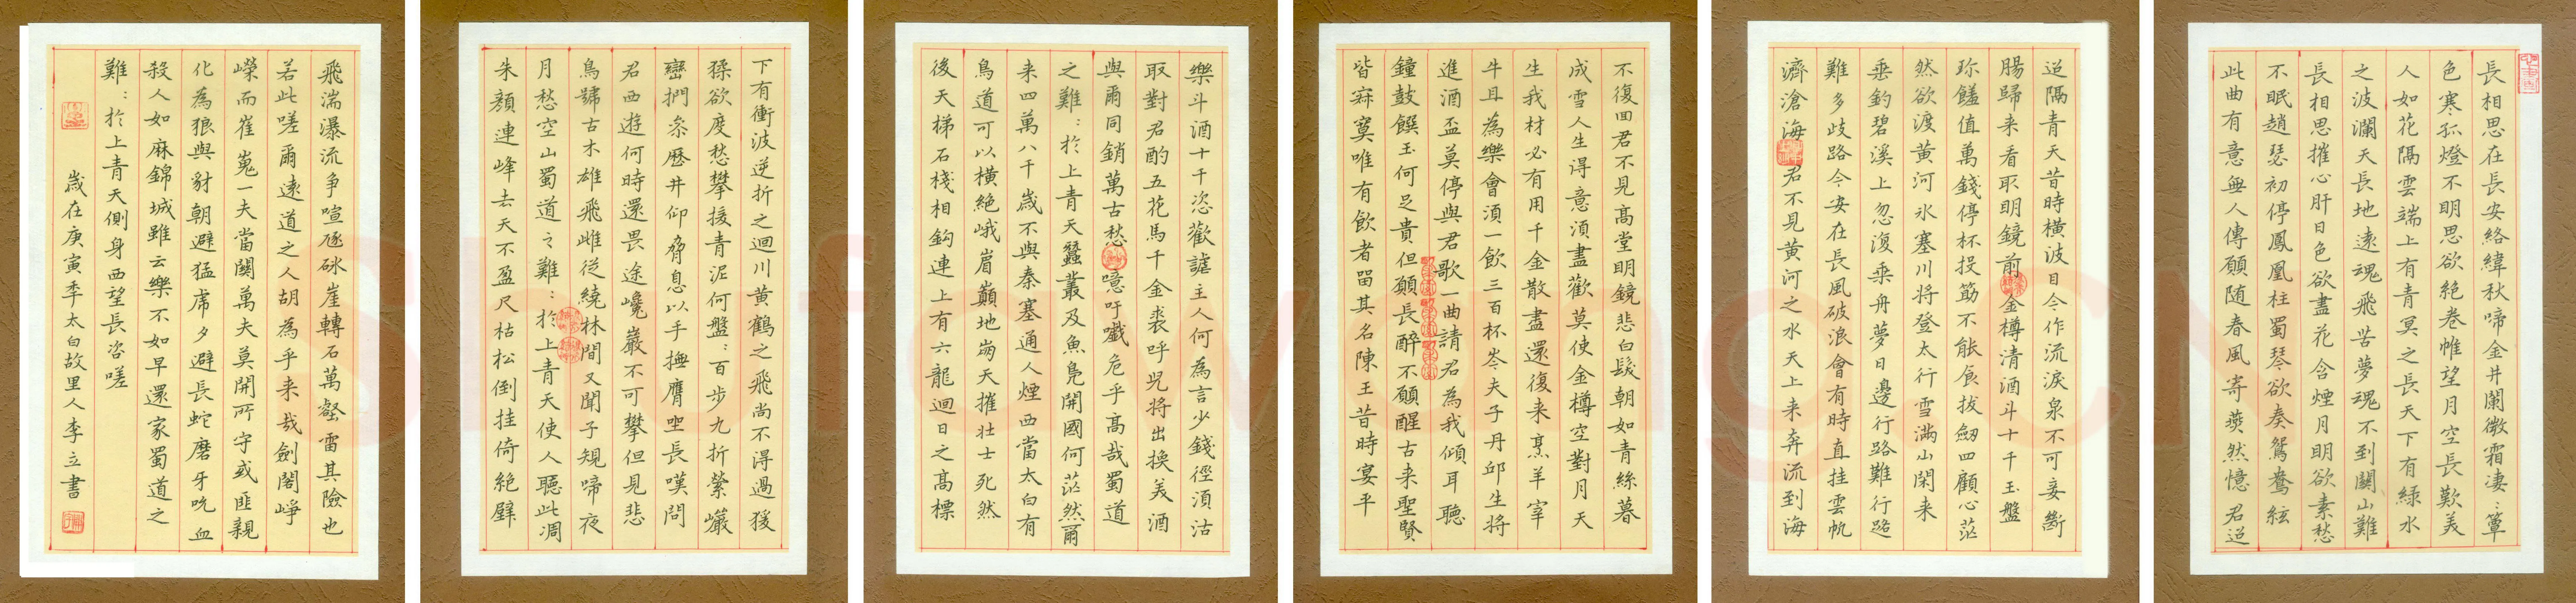 長相思在長安絡緯秋啼金井闌微霜凄:簟
色寒孤燈不明思欲絶卷帷望月空長歎美
人如花隔雲端上有青冥之長天下有緑水
之波瀾天長地遠魂飛苦夢魂不到關山難
長相思摧心肝日色欲盡花含煙月明欲素愁
不眠趙瑟初停鳳凰柱蜀琴欲奏鴛鴦絃
此曲有意無人傳願随春風寄燕然憶君迢
迢隔青天昔時橫波目今作流淚泉不可妾斷
腸歸来看取明鏡前金樽清酒斗十千玉盤
珎饈值萬錢停杯投筯不能食拔劒四顧心茫
然欲渡黄河氷塞川将登太行雪满山閑来
垂釣碧溪上忽復乗舟夢日邊行路難行路
難多歧路今安在長風破浪會有時直挂雲帆
濟滄海君不見黄河之水天上来奔流到海
不復回君不見高堂明鏡悲白髮朝如青絲暮
成雪人生得意湏盡歡莫使金樽空對月天
生我材必有用千金散盡還復来烹羊宰
牛且為樂會湏一飲三百杯岑夫子丹邱生将
進酒盃莫停與君歌一曲請君為我傾耳聽
鐘鼓饌玉何足貴但願長醉不願醒古来聖賢
皆寂寞唯有飲者留其名陳王昔時宴平
樂斗酒十千恣歡謔主人何為言少錢徑湏沽
取對君酌五花馬千金裘呼児将出换美酒
與爾同銷萬古愁噫吁戲危乎高哉蜀道
之難:於上青天蠶叢及魚鳧開國何茫然爾
来四萬八千歳不與秦塞通人煙西當太白有
鳥道可以橫絶峨眉巔地崩天摧壮士死然
後天梯石棧相鈎連上有六龍迴日之高標
下有衝波逆折之迴川黄鶴之飛尚不得過猨
猱欲度愁攀援青泥何盤:百步九折縈巖
巒捫參歷井仰脅息以手撫膺坐長嘆問
君西遊何時還畏途巉巖不可攀但見悲
鳥號古木雄飛雌從繞林間又聞子規啼夜
月愁空山蜀道之難:於上青天使人聽此凋
朱顔連峰去天不盈尺枯松倒挂倚絶壁
飛湍瀑流争喧豗砯崖轉石萬壑雷其險也
若此嗟爾遠道之人胡為乎来哉劍閣崢
嶸而崔嵬一夫當關萬夫莫開所守或匪親
化為狼與豺朝避猛虎夕避長蛇磨牙吮血
殺人如麻錦城雖云樂不如早還家蜀道之
難:於上青天側身西望長咨嗟
歳在庚寅季太白故里人李立書